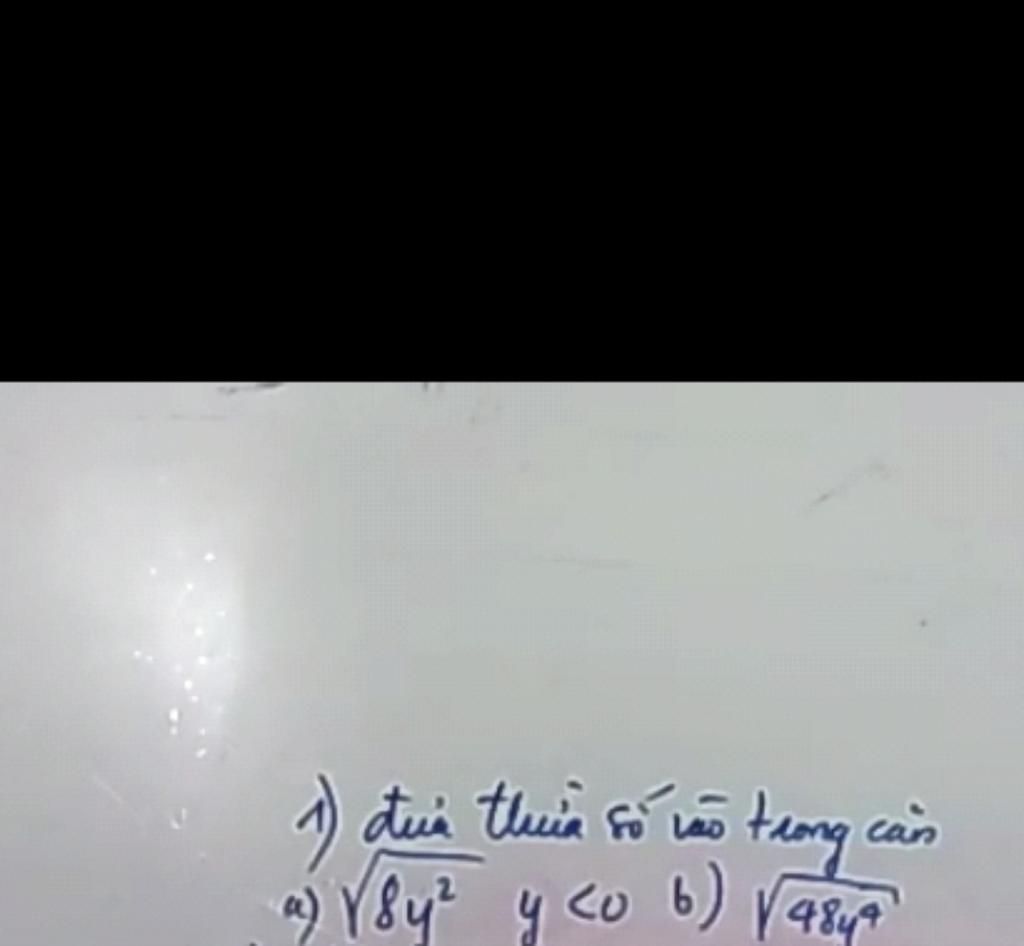 1) đưa thừa số vào trong căn
a) √8y² y <0 b) √48y⁴